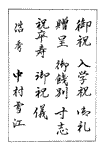 御祝 入学祝 御礼
贈呈 御餞別 寸志
祝卒寿 御祝儀
浩秀 中村雪江